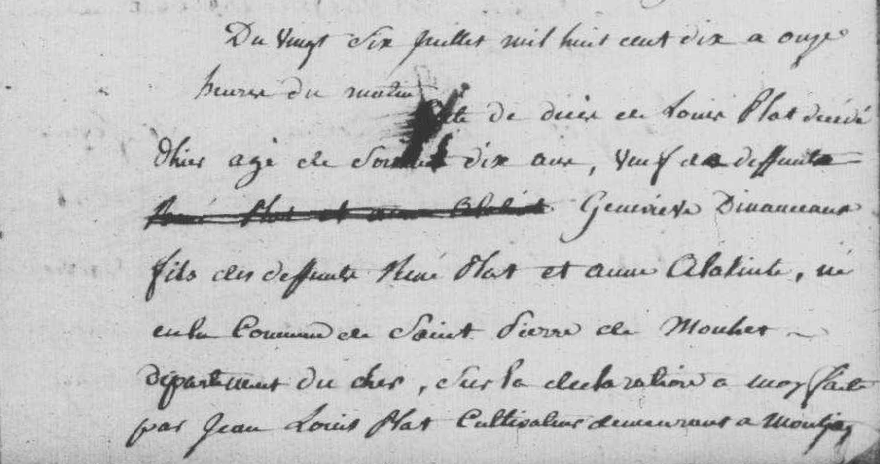 Du vingt Six juillet mil huit cent dix a onze
heures du matin
acte de décès de Louis Plat décédé
d'hier agé de Soixante dix ans, veuf de deffunte
René Plat et anne Geneviève Dinanceaux
fils des deffunts René Plat et anne, né
en la Commune de Saint Pierre de
département du cher, Sur la declaration a moy faite
par Jean Louis Plat Cultivateur demeurant a